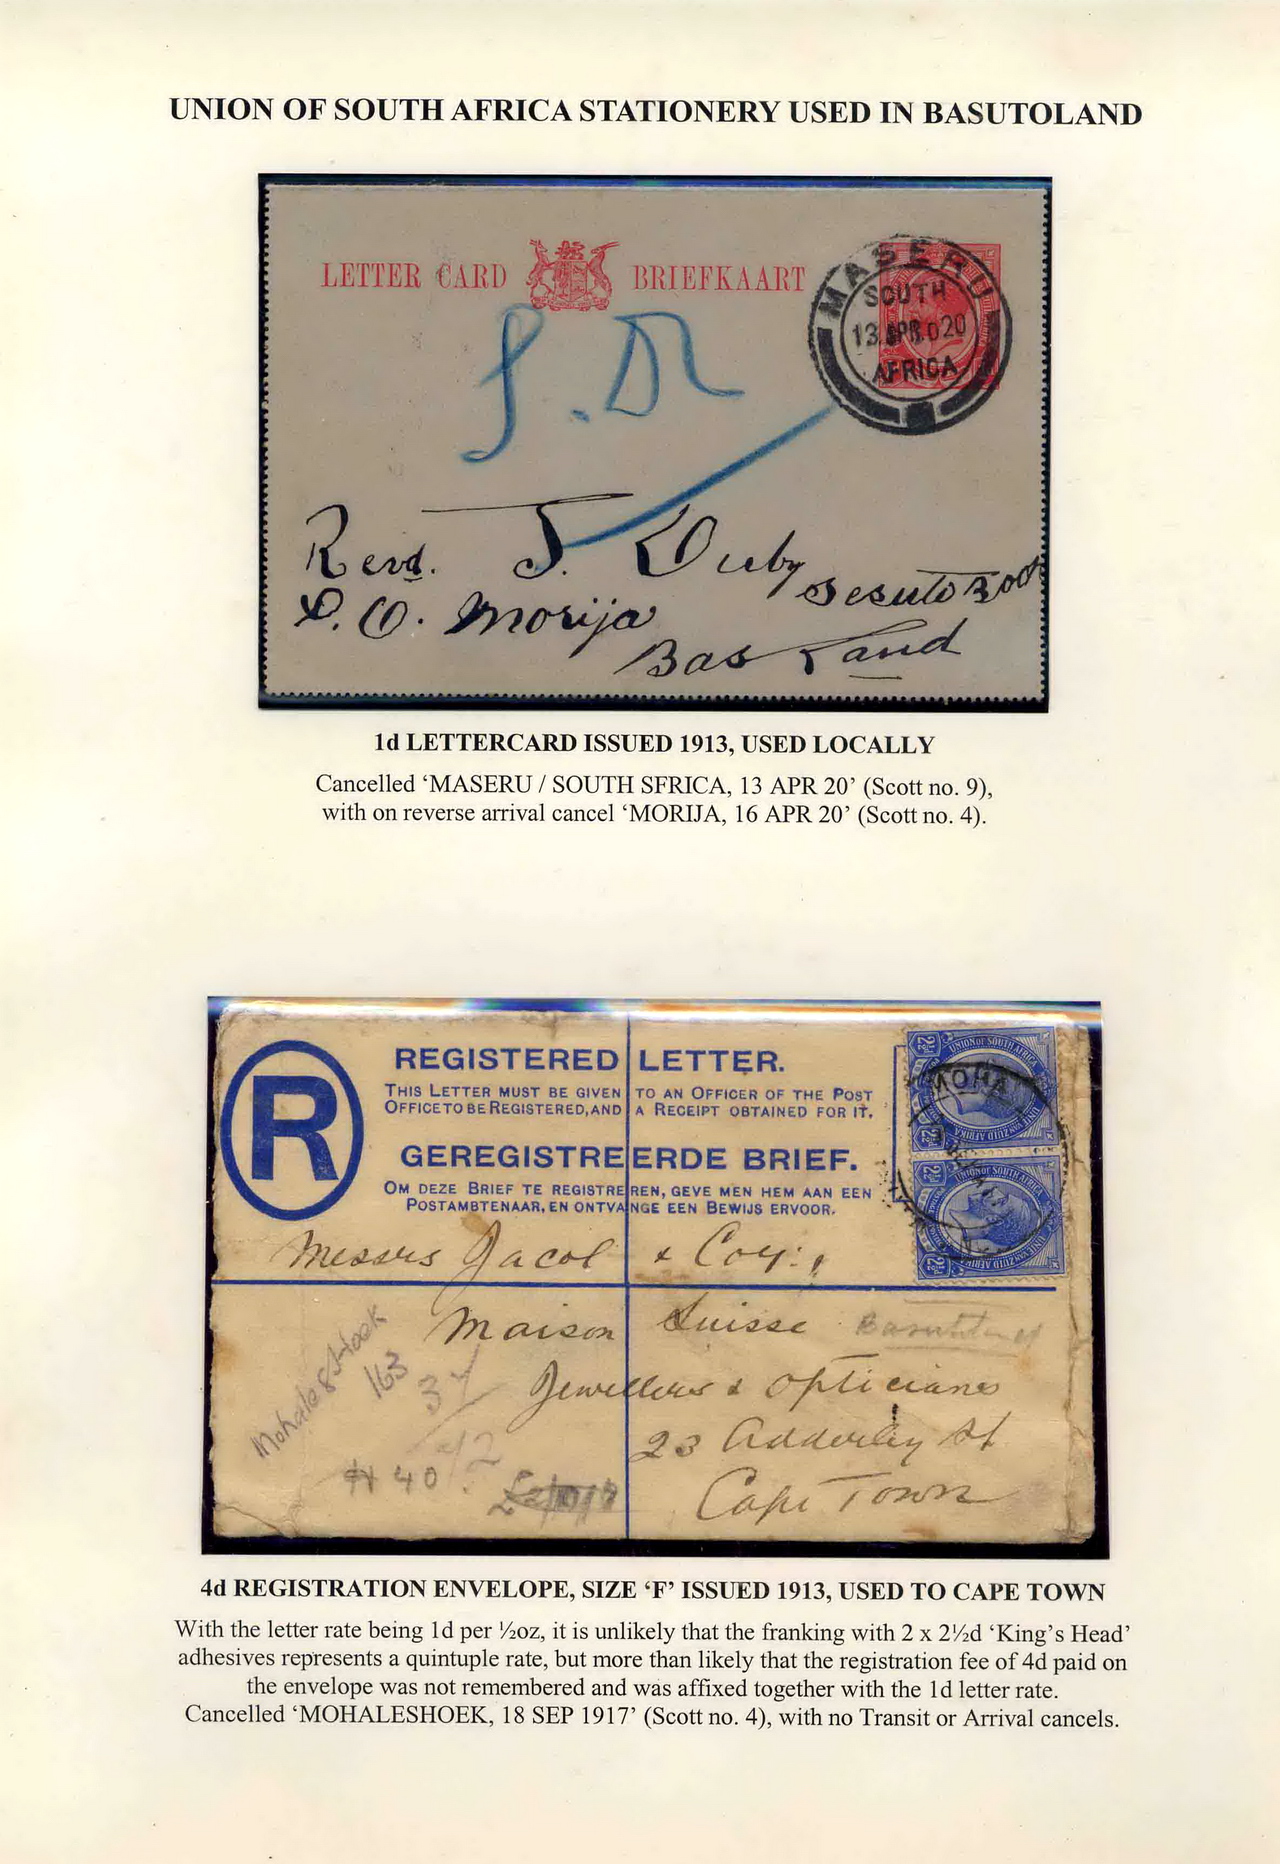 UNION OF SOUTH AFRICA STATIONERY USED IN BASUTOLAND
LETTER CARD BRIEFKAART
MASERU
SOUTH
13 APR 20
AFRICA
Revd. J. Duby
Sesuto Book
P. O. Morija
Bas Land
1d LETTERCARD ISSUED 1913, USED LOCALLY
Cancelled ‘MASERU / SOUTH SFRICA, 13 APR 20’ (Scott no. 9),
with on reverse arrival cancel ‘MORIJA, 16 APR 20’ (Scott no. 4).
R
REGISTERED LETTER.
THIS LETTER MUST BE GIVEN TO AN OFFICER OF THE POST
OFFICE TO BE REGISTERED, AND A RECEIPT OBTAINED FOR IT.
GEREGISTREERDE BRIEF.
OM DEZE BRIEF TE REGISTREREN, GEVE MEN HEM AAN EEN
POSTAMBTENAAR, EN ONTVANGE EEN BEWIJS ERVOOR.
UNION OF SOUTH AFRICA
UNIE VAN ZUID AFRIKA
MOHA
UNION OF SOUTH AFRICA
UNIE VAN ZUID AFRIKA
Messrs Jacol & Coy.,
Maison Suisse
Basutoland
Jewellers & Opticians
23 Adderley St
Cape Town
Mohaleshoek
163
40
4d REGISTRATION ENVELOPE, SIZE ‘F’ ISSUED 1913, USED TO CAPE TOWN
With the letter rate being 1d per ½oz, it is unlikely that the franking with 2 x 2½d ‘King’s Head’
adhesives represents a quintuple rate, but more than likely that the registration fee of 4d paid on
the envelope was not remembered and was affixed together with the 1d letter rate.
Cancelled ‘MOHALESHOEK, 18 SEP 1917’ (Scott no. 4), with no Transit or Arrival cancels.